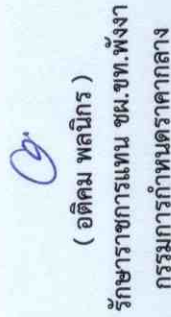 ( อติคม พลนิกร )
รักษาราชการแทน ขผ.ขท.พังงา
กรรมการกำหนดราคากลาง